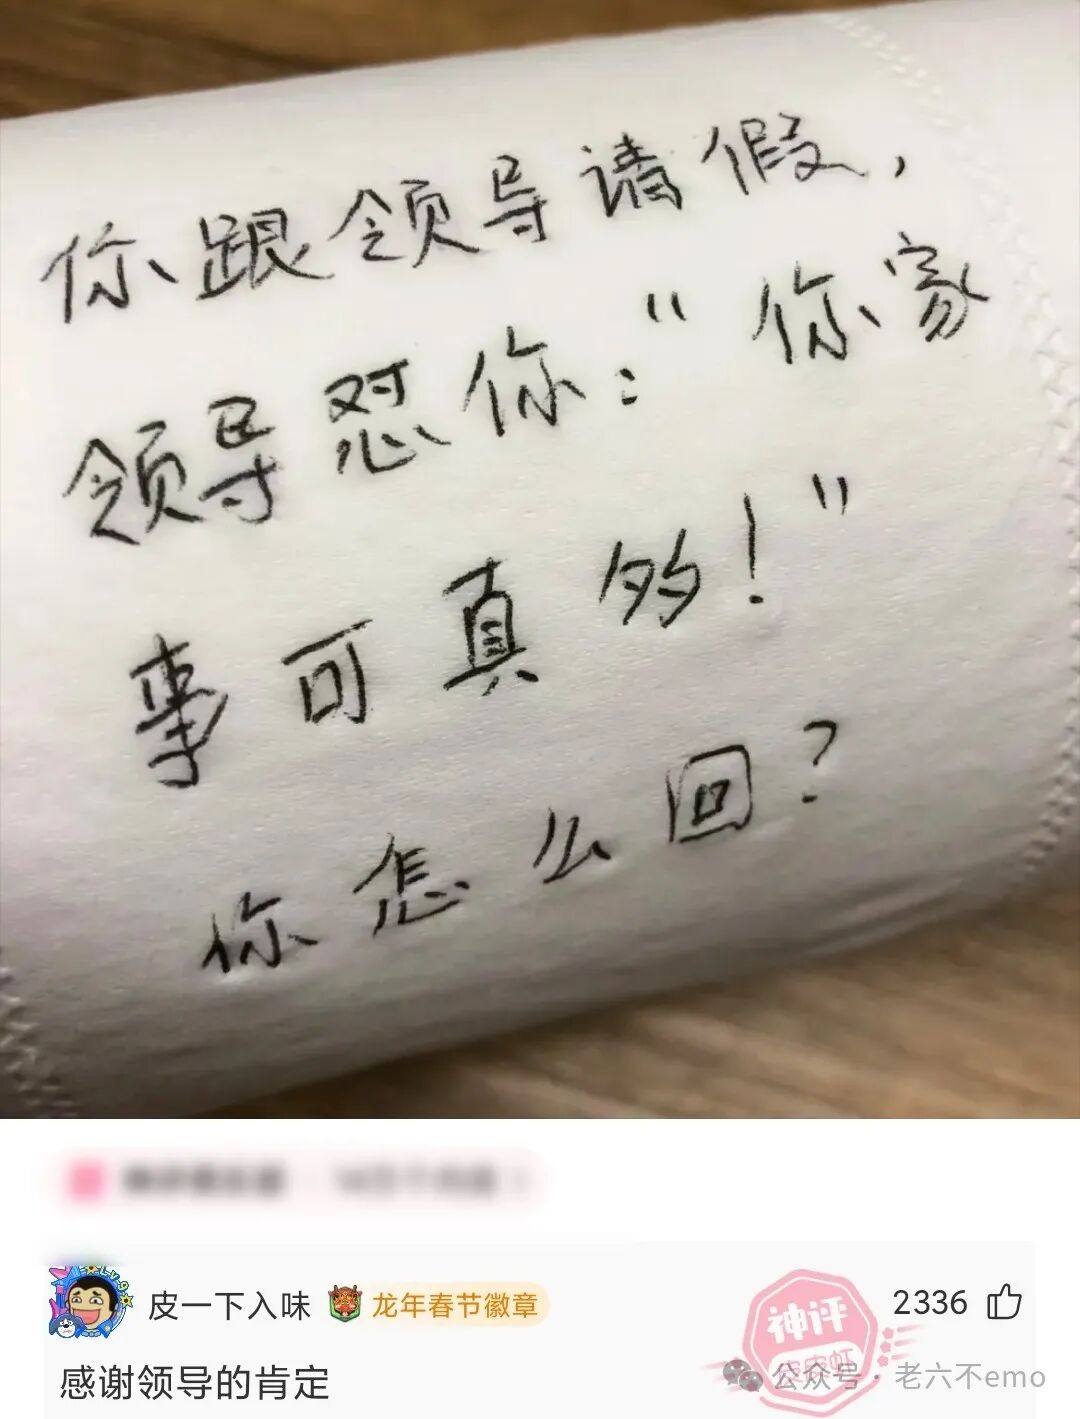 你跟领导请假，
领导怼你："你家
事可真多！"
你怎么回？
皮一下入味 龙年春节徽章
神评
皮皮虾
2336
感谢领导的肯定
公众号·老六不emo